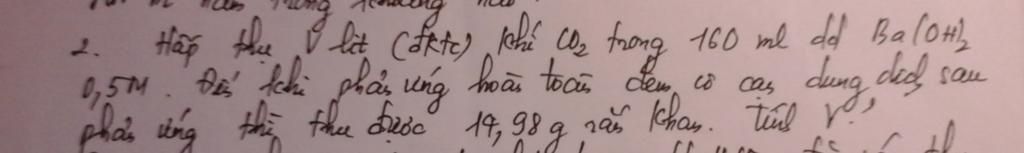 2. Hấp thụ V lít (đktc) khí CO2 trong 160 ml dd Ba(OH)2
0,5M. Đến khi phản ứng hoàn toàn đem cô cạn dung dịch sau
phản ứng thì thu được 14,98g rắn khan. Tính V?